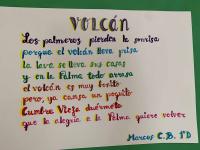 VOLCÁN
Los palmeros pierden la sonrisa
porque el volcán lleva prisa
la lava se lleva sus casas
y en la Palma todo arrasa
el volcán es muy bonito
pero, ya cansa un poquito
Cumbre Vieja duérmete
que la alegría a la Palma quiere volver
Marcos C.B. 1ºD